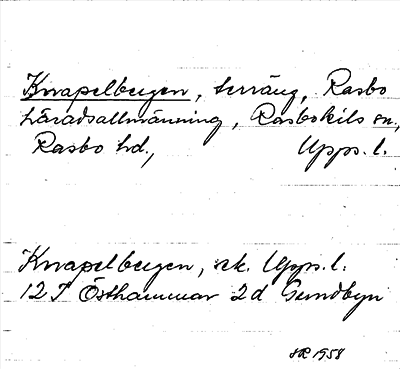 Knapelbergen, terräng, Rasbo
häradsallmänning, Rasbokils sn,
Rasbo hd., Upps. l.
Knapelbergen, ek. Upps. l.
12 I Östhammar 2d Gundbyn
HR 1958